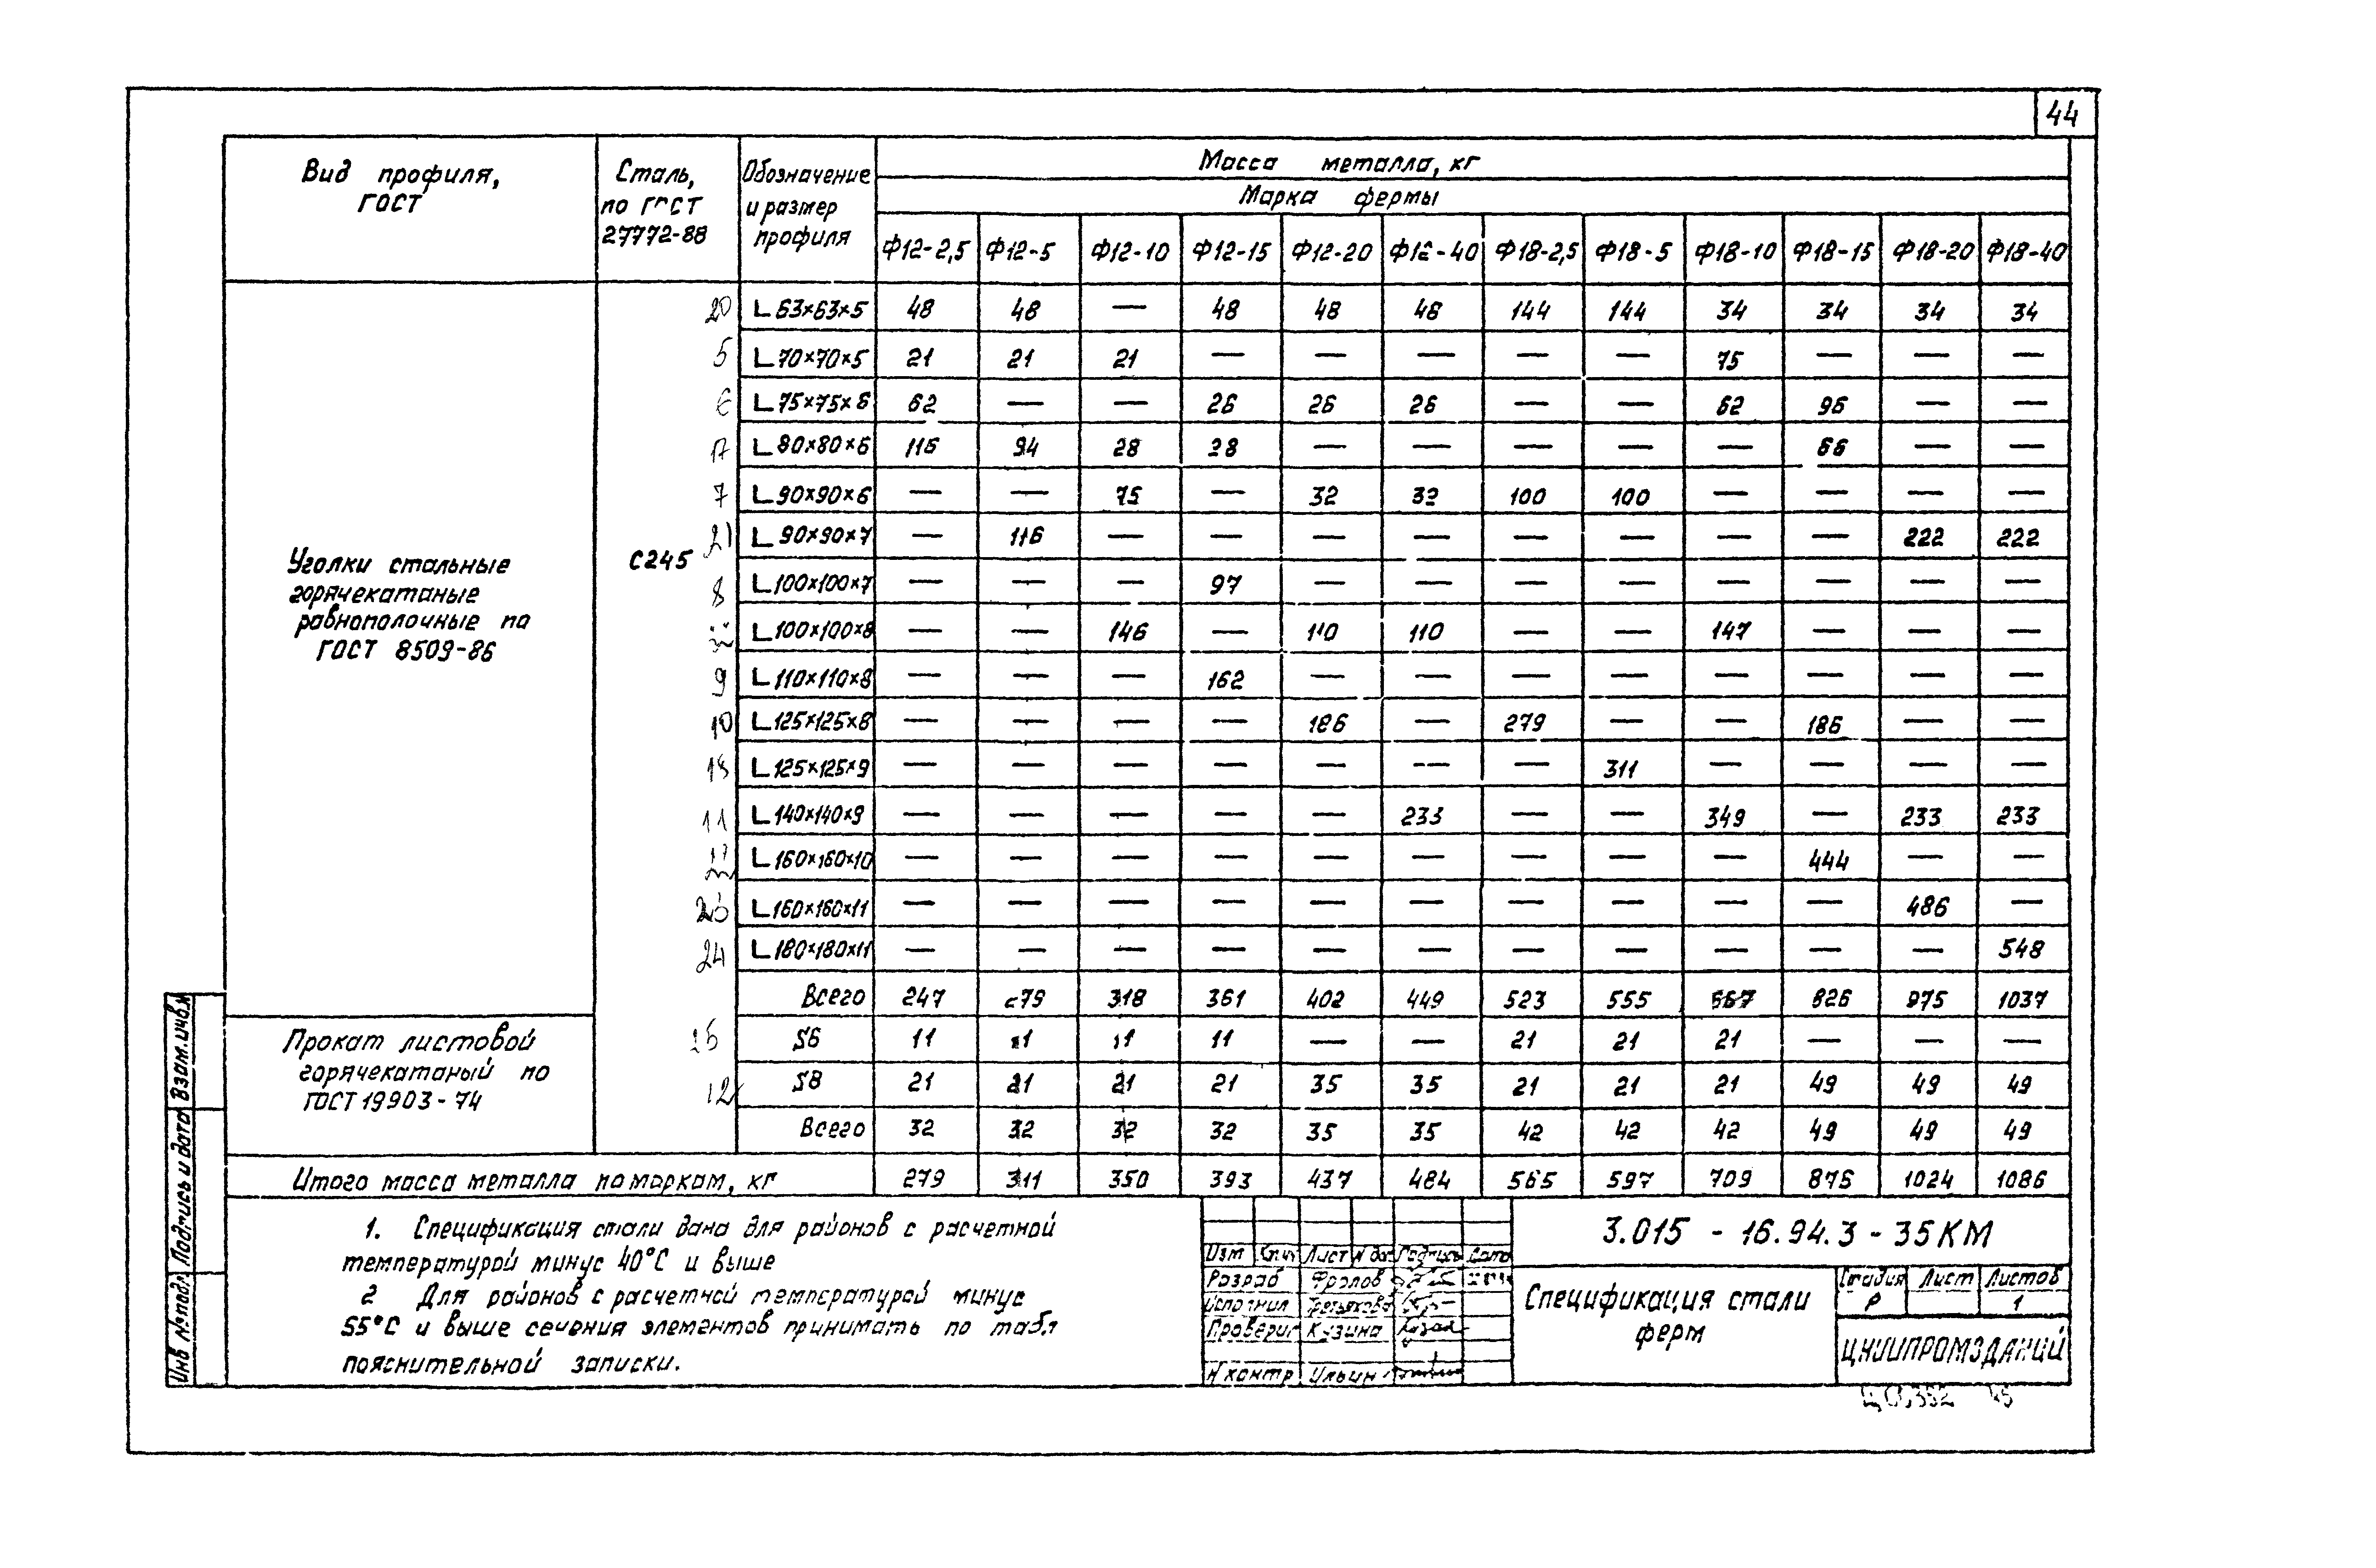 44
Вид профиля, ГОСТ
Сталь, по ГОСТ 27772-88
Обозначение и размер профиля
Масса металла, кг
Марка фермы
Ф12-2,5 Ф12-5 Ф12-10 Ф12-15 Ф12-20 Ф12-40 Ф18-2,5 Ф18-5 Ф18-10 Ф18-15 Ф18-20 Ф18-40
Уголки стальные
горячекатаные
равнополочные по
ГОСТ 8509-86
С245
20 L 63×63×5 48 48 — 48 48 48 144 144 34 34 34 34
5 L 70×70×5 21 21 21 — — — — — 75 — — —
6 L 75×75×6 62 — — 26 26 26 — — 62 96 — —
17 L 80×80×6 116 94 28 28 — — — — — 66 — —
7 L 90×90×6 — — 75 — 32 32 100 100 — — — —
21 L 90×90×7 — 116 — — — — — — — — 222 222
8 L 100×100×7 — — — 97 — — — — — — — —
L 100×100×8 — — 146 — 110 110 — — 147 — — —
9 L 110×110×8 — — — 162 — — — — — — — —
10 L 125×125×8 — — — — 186 — 279 — — 186 — —
18 L 125×125×9 — — — — — — — 311 — — — —
11 L 140×140×9 — — — — — 233 — — 349 — 233 233
L 160×160×10 — — — — — — — — — 444 — —
23 L 160×160×11 — — — — — — — — — — 486 —
24 L 180×180×11 — — — — — — — — — — — 548
Всего 247 279 318 361 402 449 523 555 667 826 975 1037
Прокат листовой
горячекатаный по
ГОСТ 19903-74
S6 11 11 11 11 — — 21 21 21 — — —
12 S8 21 21 21 21 35 35 21 21 21 49 49 49
Всего 32 32 32 32 35 35 42 42 42 49 49 49
Итого масса металла по маркам, кг 279 311 350 393 437 484 565 597 709 875 1024 1086
1. Спецификация стали дана для районов с расчетной
температурой минус 40°С и выше
2 Для районов с расчетной температурой минус
55°С и выше сечения элементов принимать по табл
пояснительной записки.
Взам.инв.№
Подпись и дата
Инв № подл
Изм Кол.уч Лист № док Подпись Дата
Разраб Фролов
Исполнил Третьякова
Проверил Кузина
Н контр Ильин
3.015 - 16.94.3 - 35КМ
Спецификация стали
ферм
Стадия Лист Листов
Р 1
ЦНИИПРОМЗДАНИЙ
45